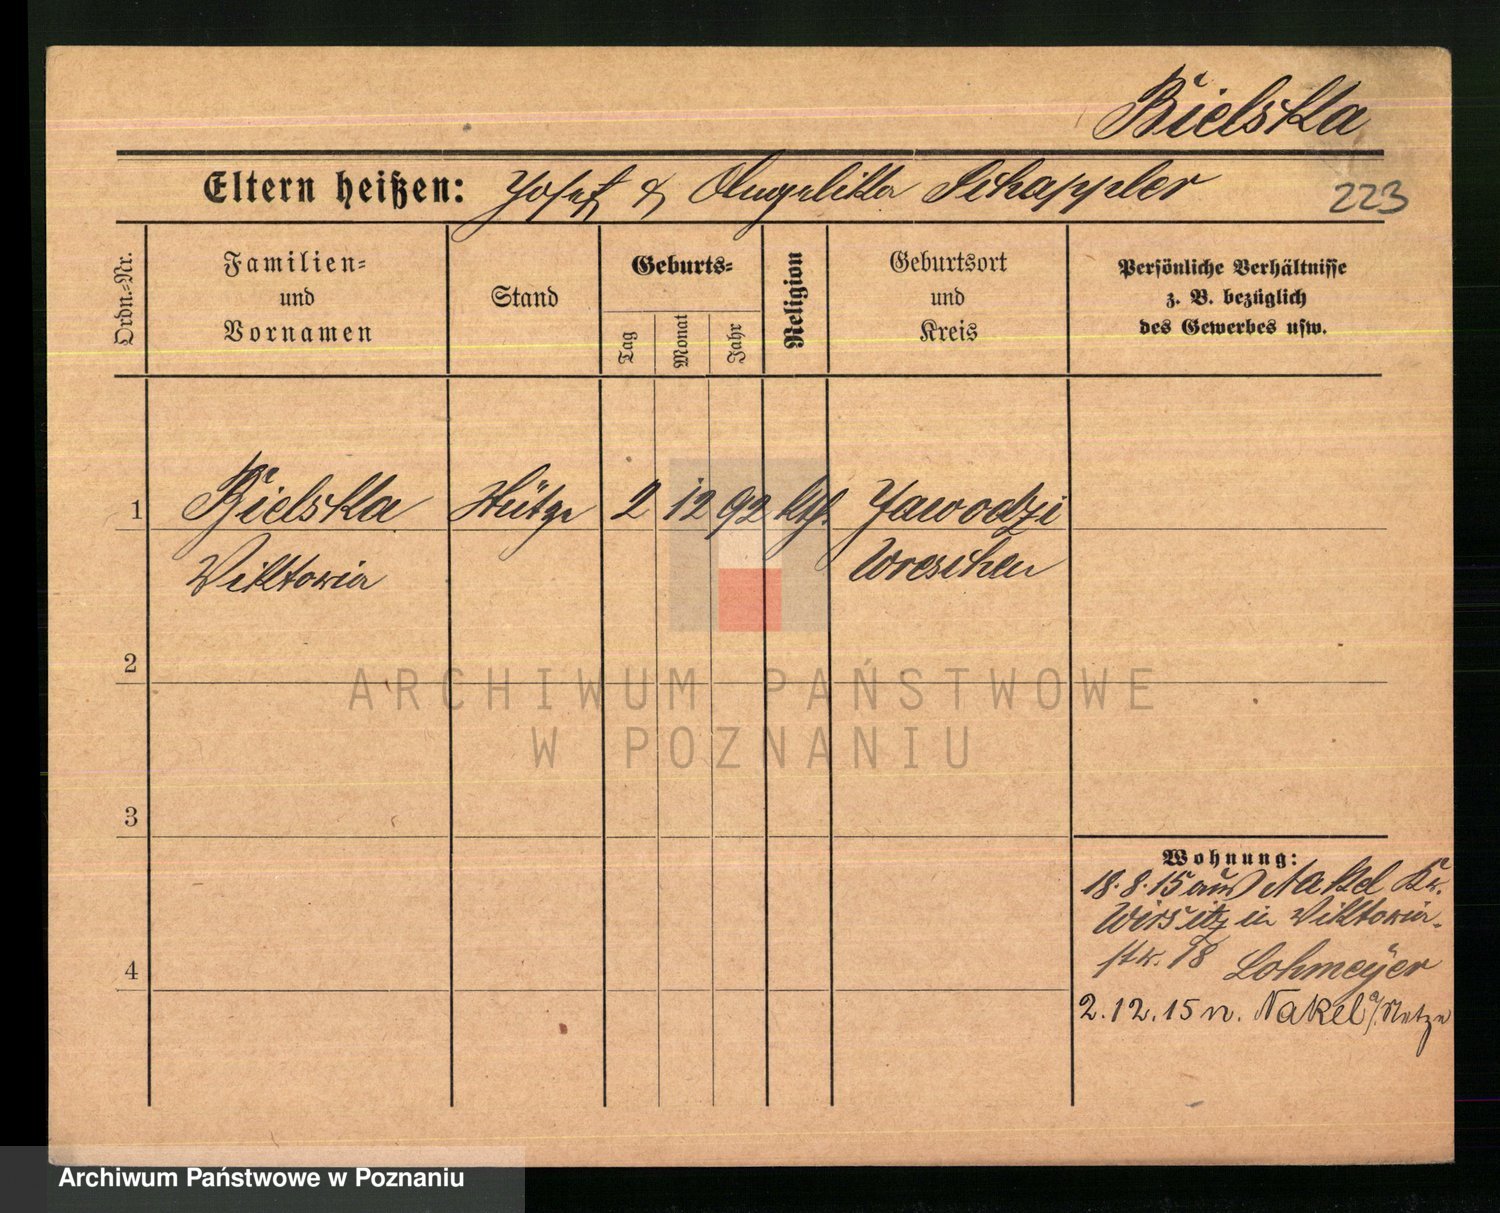 Bielska
Eltern heißen: Josef & Angelika Schappler
223
Ordn.=Nr.
Familien=
und
Vornamen
Stand
Geburts=
Tag
Monat
Jahr
Religion
Geburtsort
und
Kreis
Persönliche Verhältnisse
z. B. bezüglich
des Gewerbes usw.
1 Bielska Stütze 2 12 92 kth. Zawodzi
Viktoria Wreschen
2
3
4
Wohnung:
18.8.15 aus Nakel Kr.
Wirsitz in Viktoria-
str. 18 Lohmeÿer
2.12.15 n. Nakel a/Netze
ARCHIWUM PAŃSTWOWE
W POZNANIU
Archiwum Państwowe w Poznaniu